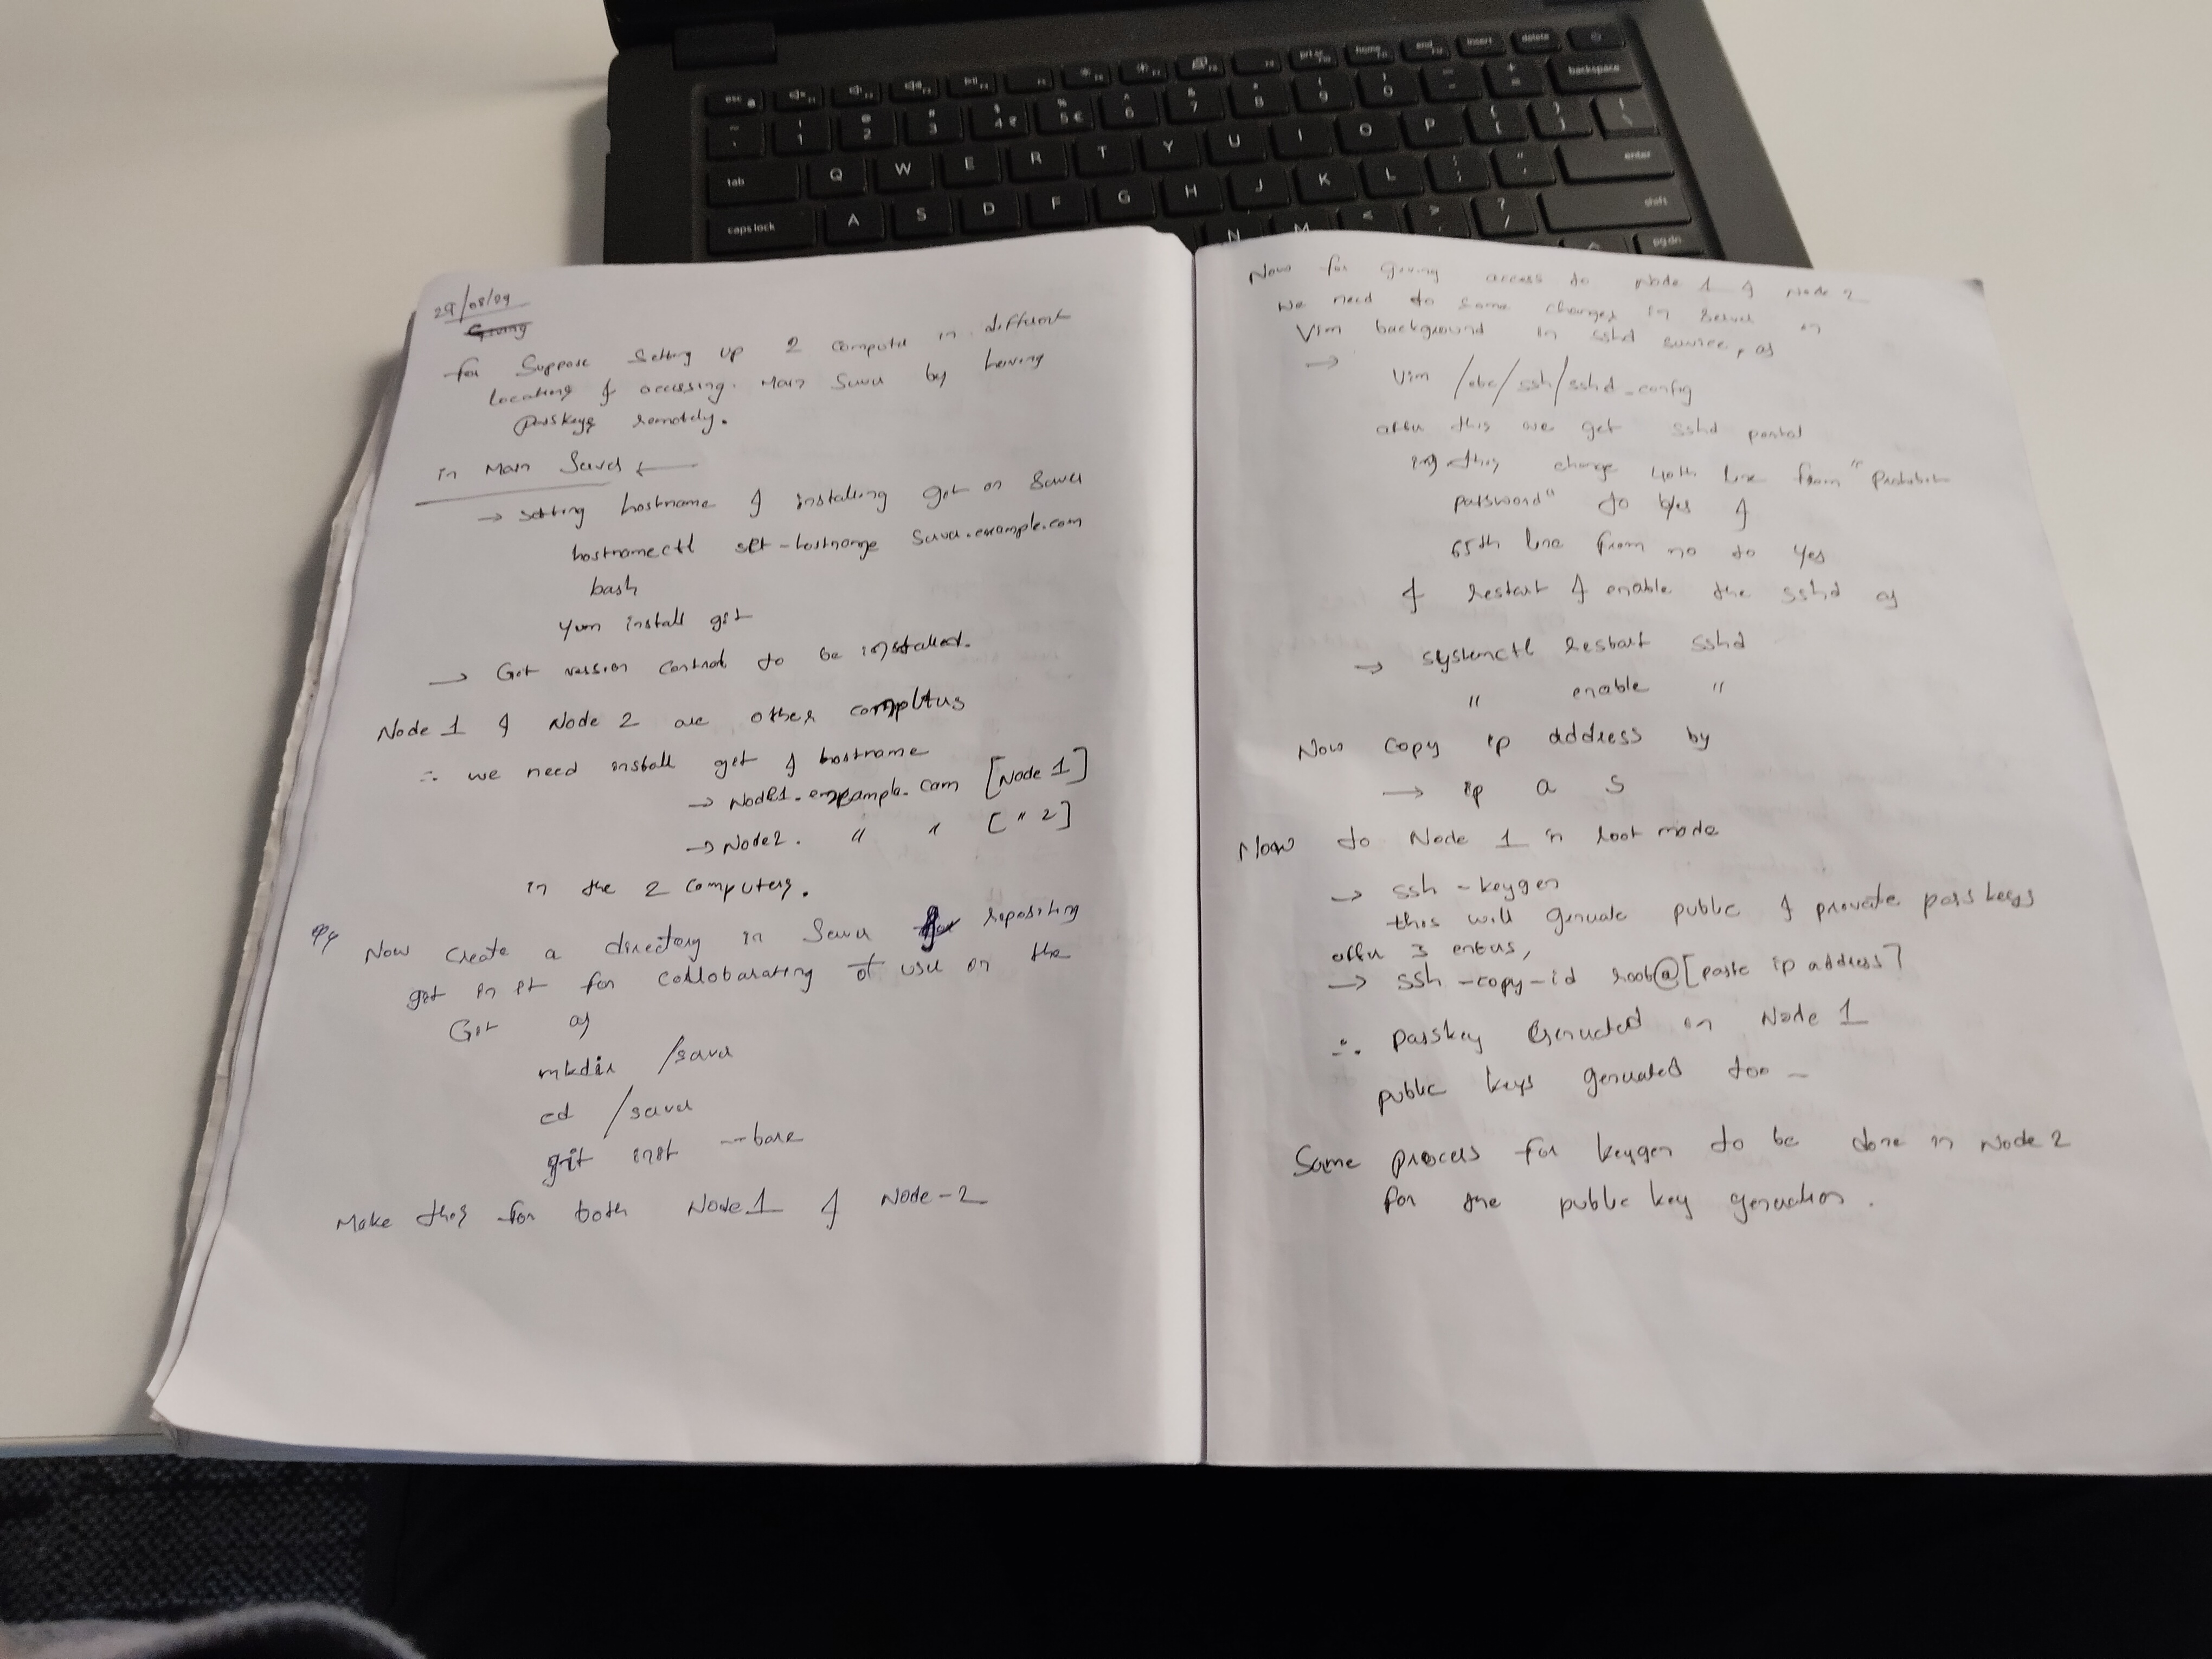 29/08/24
Giving
for Suppose Setting up 2 Computer in different
locating & accessing. Main Server by having
passkeys remotely.
in Main Server ←
→ setting hostname & installing git on Server
hostnamectl set-hostname Server.example.com
bash
yum install git
→ Git version control to be installed.
Node 1 & Node 2 are other computers
∴ we need install get & hostname
→ Node1.example.com [Node 1]
→ Node2. " " [" 2]
in the 2 computers.
Now Create a directory in Server for repositing
git in it for collobarating of use on the
Git as
mkdir /server
cd /server
git init --bare
Make this for both Node 1 & Node-2
Now for giving access to Node 1 & Node 2
we need to some changes in Server in
Vim background in sshd service, as
→ Vim /etc/ssh/sshd_config
after this we get sshd portal
in this change 40th line from "Prohibit
password" to yes &
65th line from no to yes
& restart & enable the sshd as
→ systemctl restart sshd
" enable "
Now copy ip address by
→ ip a s
Now to Node 1 in root mode
→ ssh-keygen
this will generate public & private passkeys
after 3 enters,
→ ssh-copy-id root@[paste ip address]
∴ passkey Generated on Node 1
public keys generated too -
Same process for keygen to be done in Node 2
for the public key generation.